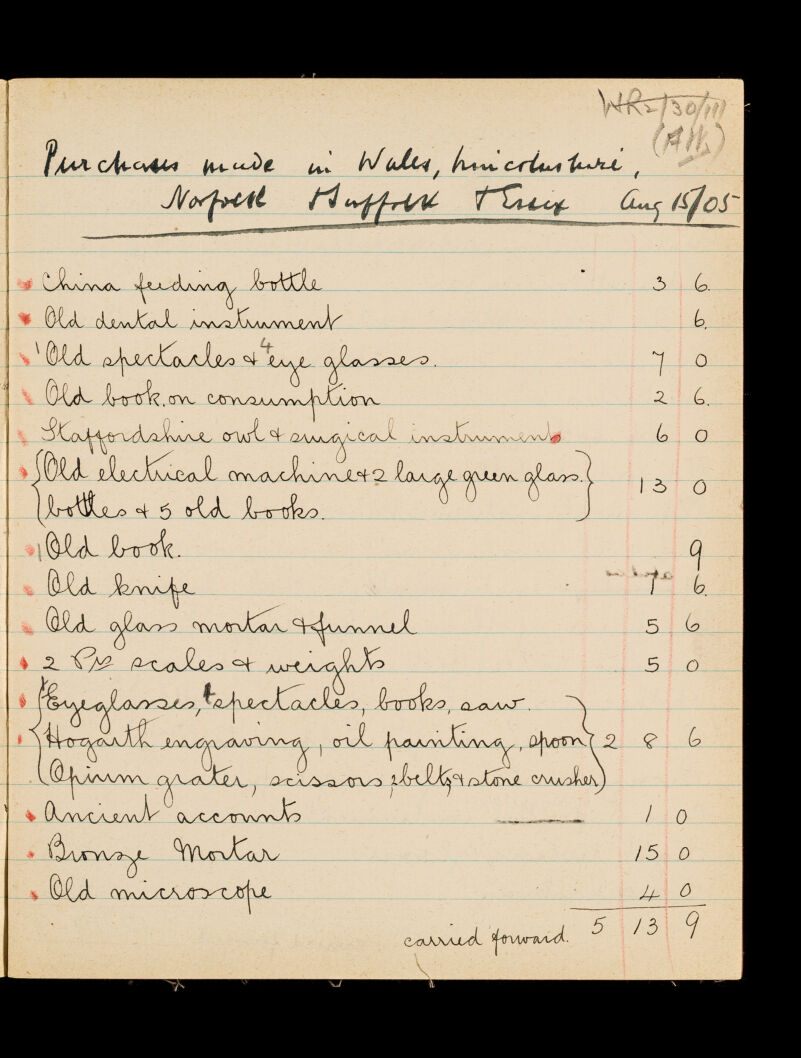 WA2/30/11
(A16)
Purchases made in Wales, Lincolnshire,
Norfolk & Suffolk & Essex Aug 15/05
China feeding bottle 3 6.
Old dental instrument 6.
1 Old spectacles & 4 eye glasses. 7 0
Old book on consumption 2 6.
Staffordshire owl & surgical instruments 6 0
Old electrical machine & 2 large green glass.
bottles & 5 old books. 13 0
1 Old book. 9
Old knife 1 6.
Old glass mortar & funnel 5 6
2 Prs scales & weights 5 0
Eyeglasses, 4 spectacles, books, saw.
Hogarth engraving, oil painting, spoon 2 8 6
Opium grater, scissors, 2 belts, & stone crusher
Ancient accounts 1 0
Bronze Mortar 15 0
Old microscope 4 0
carried forward. 5 13 9